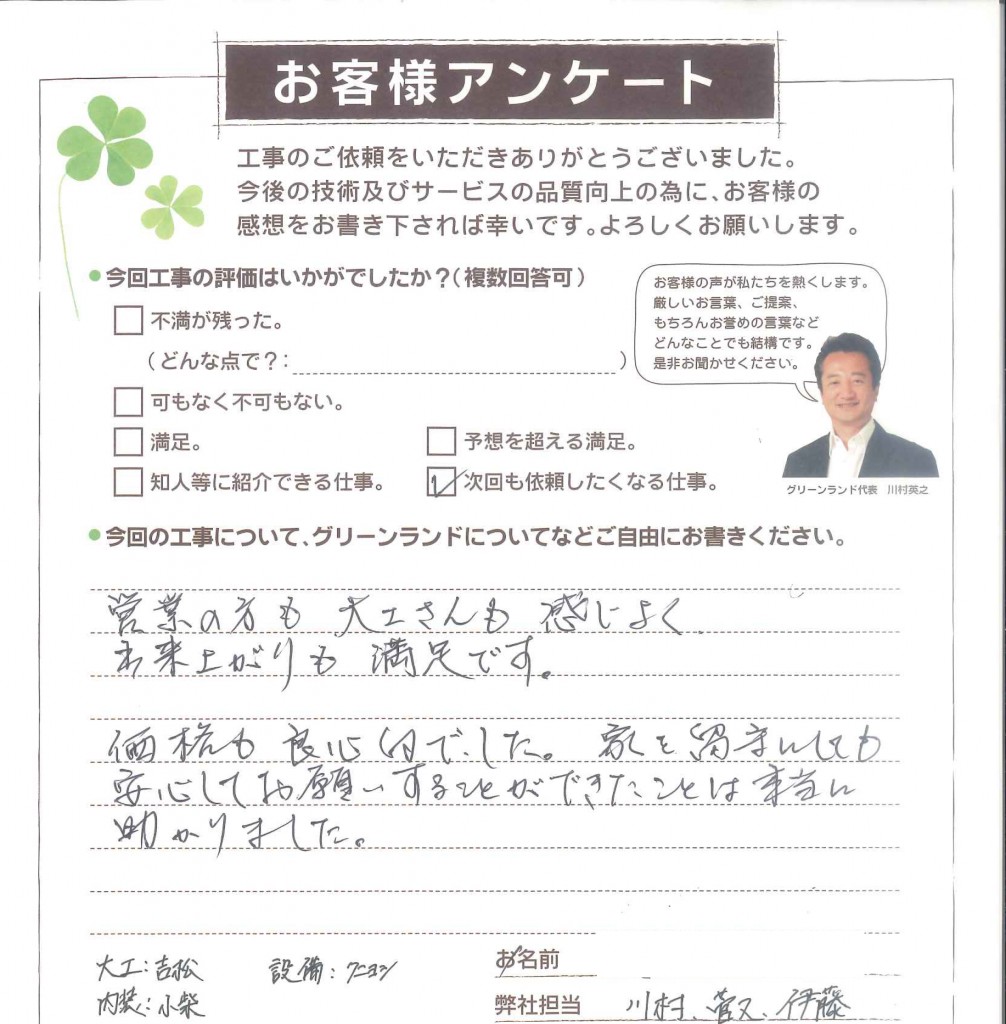 お客様アンケート
工事のご依頼をいただきありがとうございました。
今後の技術及びサービスの品質向上の為に、お客様の
感想をお書き下されば幸いです。よろしくお願いします。
今回工事の評価はいかがでしたか?(複数回答可)
不満が残った。
(どんな点で?: )
可もなく不可もない。
満足。
予想を超える満足。
知人等に紹介できる仕事。
次回も依頼したくなる仕事。
お客様の声が私たちを熱くします。
厳しいお言葉、ご提案、
もちろんお誉めの言葉など
どんなことでも結構です。
是非お聞かせください。
グリーンランド代表 川村英之
今回の工事について、グリーンランドについてなどご自由にお書きください。
営業の方も 大工さんも 感じよく
出来上がりも 満足です。
価格も 良心的でした。 家を留守にしても
安心してお願いすることができたことは本当に
助かりました。
大工:吉松
設備:クニヨシ
内装:小柴
お名前
弊社担当 川村、菅又、伊藤